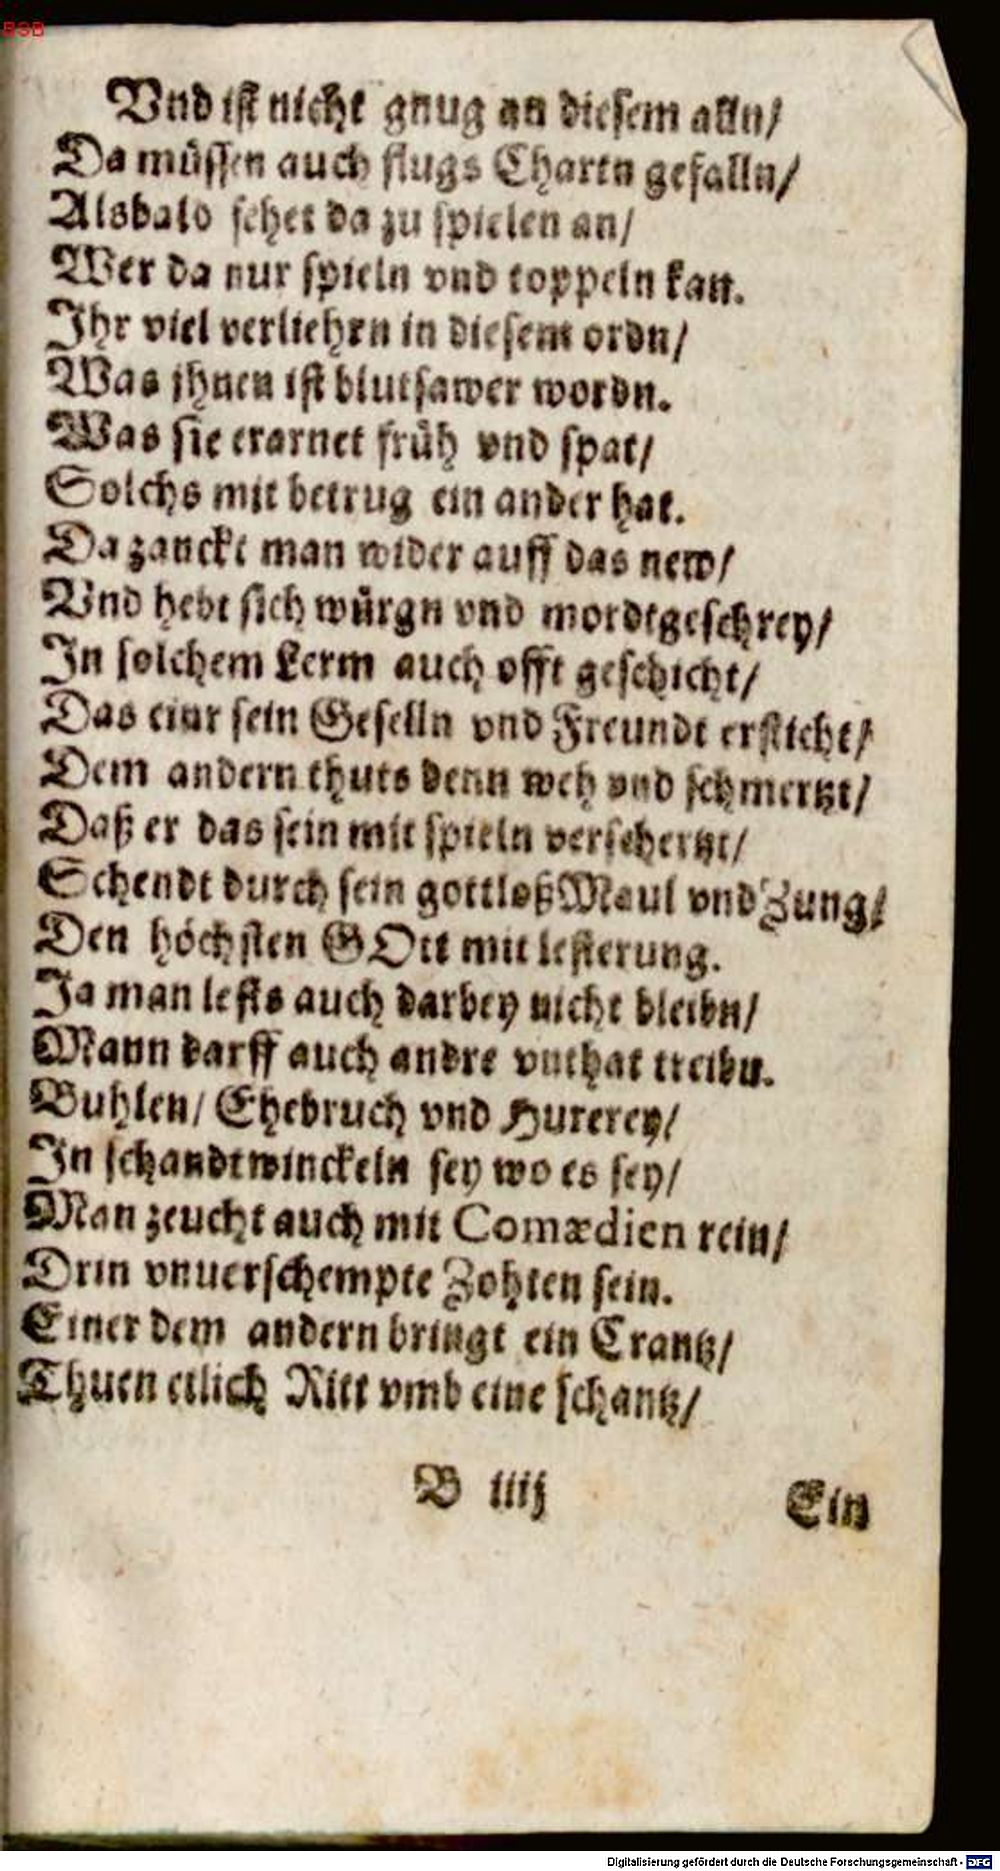 BSB
Vnd ist nicht gnug an diesem alln/
Da müssen auch flugs Chartn gefalln/
Alsbald fehet da zu spielen an/
Wer da nur spieln vnd toppeln kan.
Ihr viel verliehrn in diesem ordn/
Was ihnen ist blutsawer wordn.
Was sie erarnet früh vnd spat/
Solchs mit betrug ein ander hat.
Da zanckt man wider auff das new/
Vnd hebt sich würgn vnd mordtgeschrey/
In solchem Lerm auch offt geschicht/
Das einr sein Geselln vnd Freundt ersticht/
Dem andern thuts denn weh vnd schmertzt/
Daß er das sein mit spieln verschertzt/
Schendt durch sein gottloß Maul vnd Zung/
Den höchsten GOtt mit lesterung.
Ja man lests auch darbey nicht bleibn/
Mann darff auch andre vnthat treibn.
Buhlen/ Ehebruch vnd Hurerey/
In schandtwinckeln sey wo es sey/
Man zeucht auch mit Comædien rein/
Drin vnuerschempte Zohten sein.
Einer dem andern bringt ein Crantz/
Thuen etlich Ritt vmb eine schantz/
B iiij
Ein
Digitalisierung gefördert durch die Deutsche Forschungsgemeinschaft - DFG